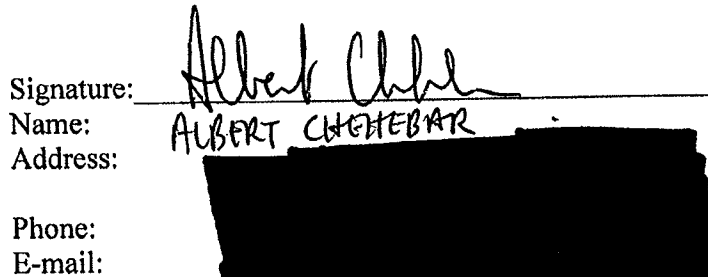 Signature: Albert
Name: ALBERT CHEHEBAR
Address:
Phone:
E-mail: